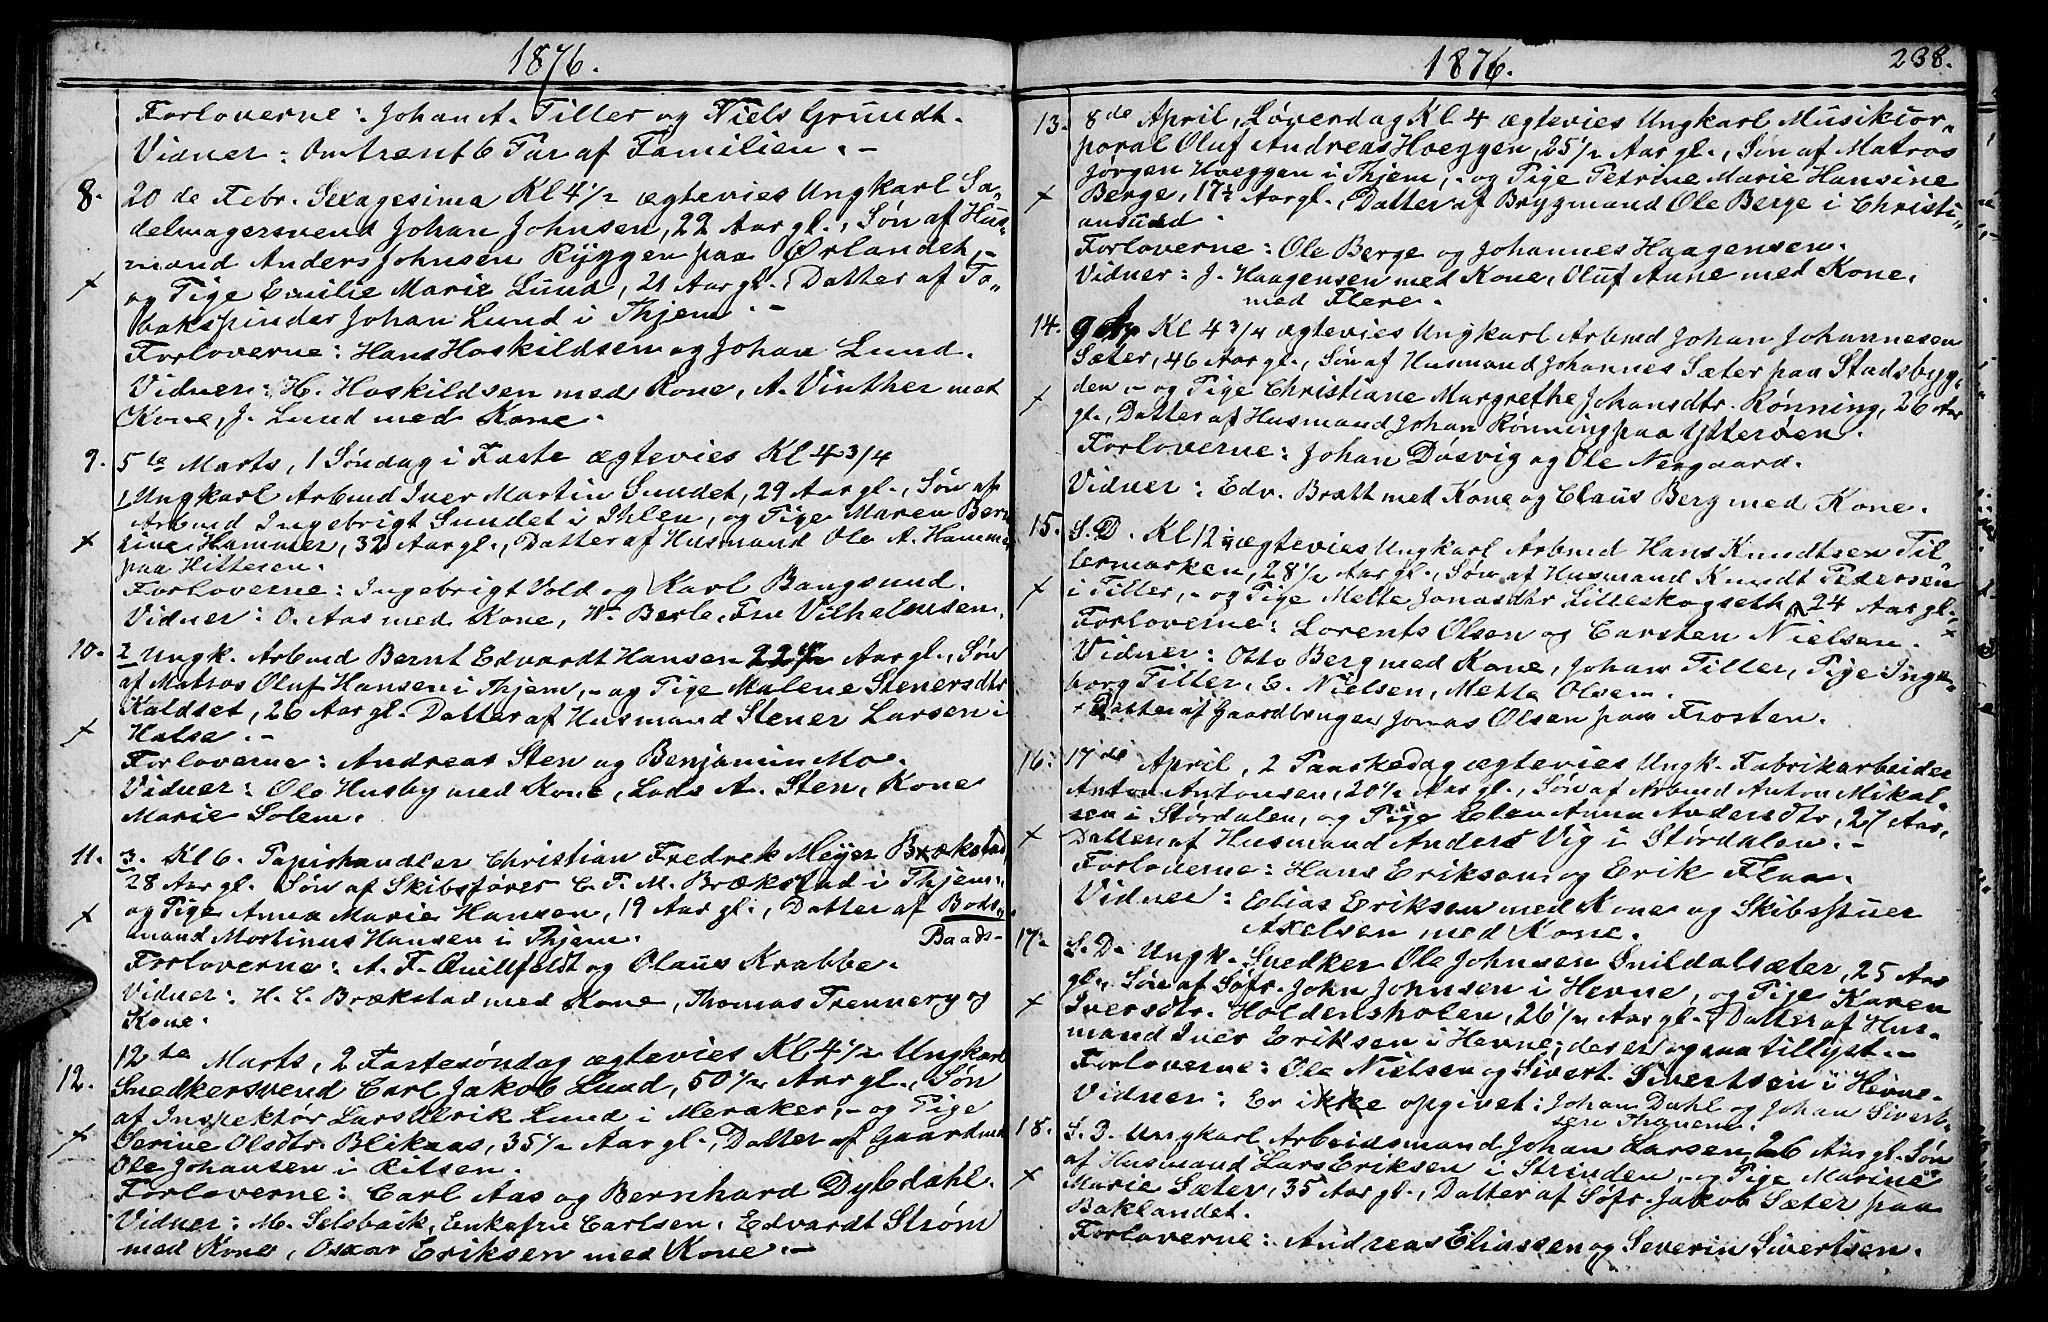 1876.
Forloverne: Johan A. Tiller og Niels Grundt.
Vidner: Omtrent 6 Par af Familien. -
8. 20de Febr. Sexagesima Kl 4 1/2 ægtevies Ungkarl Sa-
delmagersvend Johan Johnsen, 22 Aar gl., Søn af Hus-
mand Anders Johnsen Ryggen paa Ørlandet, -
og Pige Emilie Marie Lund, 21 Aar gl., Datter af To-
bakspinder Johan Lund i Thjem. -
Forloverne: Hans Hoskildsen og Johan Lund.
Vidner: H. Hoskildsen med Kone, A. Vinther med
Kone, J. Lund med Kone.
9. 5te Marts, 1 Søndag i Faste ægtevies Kl 4 3/4
1 Ungkarl Arbmd Iver Martin Sundet, 29 Aar gl., Søn af
Arbmd Ingebrigt Sundet i Ihlen, og Pige Maren Bern
tine Hammer, 32 Aar gl., Datter af Husmand Ole A. Hammer
paa Hitteren.
Forloverne: Ingebrigt Vold og Karl Bangsund.
Vidner: O. Aas med Kone, W. Berle, Fru Vilhelmsen.
10. 2 Ungk. Arbmd Bernt Edvardt Hansen 22 1/2 Aar gl., Søn
af Matros Oluf Hansen i Thjem, - og Pige Malene Stenersdtr
Kaldset, 26 Aar gl. Datter af Husmand Stener Larsen i
Halse. -
Forloverne: Andreas Sten og Benjamin Mo.
Vidner: Ole Husby med Kone, Lods A. Sten, Kone
Marie Solem.
11. 3. Kl 6. Papirhandler Christian Fredrek Meyer Brækstad
28 Aar gl. Søn af Skibsfører C. F. M. Brækstad i Thjem:
og Pige Anna Marie Hansen, 19 Aar gl., Datter af Bods-
mand Martinus Hansen i Thjem. Baads-
Forloverne: A. F. Quillfeldt og Olaus Krabbe.
Vidner: H. L. Brækstad med Kone, Thomas Trennery og
Kone.
12. 12te Marts, 2 Fastesøndag ægtevies Kl 4 1/2 Ungkarl
Snedkersvend Carl Jakob Lund, 50 1/2 Aar gl., Søn
af Inspektør Lars Ulrik Lund i Meraker, - og Pige
Serine Olsdtr. Blikaas, 35 1/2 Aar gl., Datter af Gaardmd
Ole Johansen i Ritsen.
Forloverne: Carl Aas og Bernhard Dybdahl.
Vidner: M. Selsbak, Enkefru Carlsen, Edvardt Strøm
med Kone, Oskar Eriksen med Kone. -
1876. 238.
13. 8de April, Løverdag Kl 4 ægtevies Ungkarl Musikkor-
poral Oluf Andreas Hoeggen, 25 1/2 Aar gl., Søn af Matros
Jørgen Hoeggen i Thjem, - og Pige Petrine Marie Hansine
Berge, 17 1/2 Aar gl., Datter af Brygmand Ole Berge i Christi-
ansund.
Forloverne: Ole Berge og Johannes Haagensen.
Vidner: J. Haagensen med Kone, Oluf Aune med Kone.
med Flere.
14. 9 Ap Kl 4 3/4 ægtevies Ungkarl Arbmd Johan Johannesen
Sæter, 46 Aar gl., Søn af Husmand Johannes Sæter paa Stadsbyg-
den, - og Pige Christiane Margrethe Johansdtr. Rønning, 26 Aar
gl., Datter af Husmand Johan Rønning paa Ytterøen.
Forloverne: Johan Døsvig og Ole Nergaard.
Vidner: Edv. Bratt med Kone og Claus Berg med Kone.
15. S. D. Kl 12 ægtevies Ungkarl Arbmd Hans Knudtsen Til
lermarken, 28 1/2 Aar gl., Søn af Husmand Knudt Pedersen
i Tiller, - og Pige Mette Jonasdtr Lilleskogseth, 24 Aar gl., x
Forloverne: Lorents Olsen og Carsten Nielsen.
Vidner: Otto Berg med Kone, Johan Tiller, Pige Inge-
borg Tiller, C. Nielsen, Mette Olsen.
x Datter af Gaardbruger Jonas Olsen paa Frosten.
16. 17de April, 2 Paaskedag ægtevies Ungk. Fabrikarbeider
Anton Antonsen, 20 1/2 Aar gl., Søn af Arbmd Anton Mikal-
sen i Størdalen, og Pige Elen Anna Andersdtr, 27 Aar,
Datter af Husmand Anders Vig i Størdalen. -
Forloverne: Hans Eriksen og Erik Flaa.
Vidner: Elias Eriksen med Kone og Skibsstuer
Axelsen med Kone.
17. S. D. Ungk. Snedker Ole Johnsen Snildalsæter, 25 Aar
gl., Søn af Søfr. John Johnsen i Hevne, og Pige Karen
Iversdtr. Holdensholen, 26 1/2 Aar gl., Datter af Hus-
mand Iver Eriksen i Hevne, der er ogsaa tillyst. -
Forloverne: Ole Nielsen og Sivert Sivertsen i Hevne.
Vidner: Er ikke opgivet: Johan Dahl og Johan Sivert-
sen
18. S. D. Ungkarl Arbeidsmand Johan Larsen, 26 Aar gl. Søn
af Husmand Lars Eriksen i Strinden, - og Pige Marine
Marie Sæter, 35 Aar gl., Datter af Søfr. Jakob Sæter paa
Baklandet.
Forloverne: Andreas Eliassen og Severin Sivertsen.